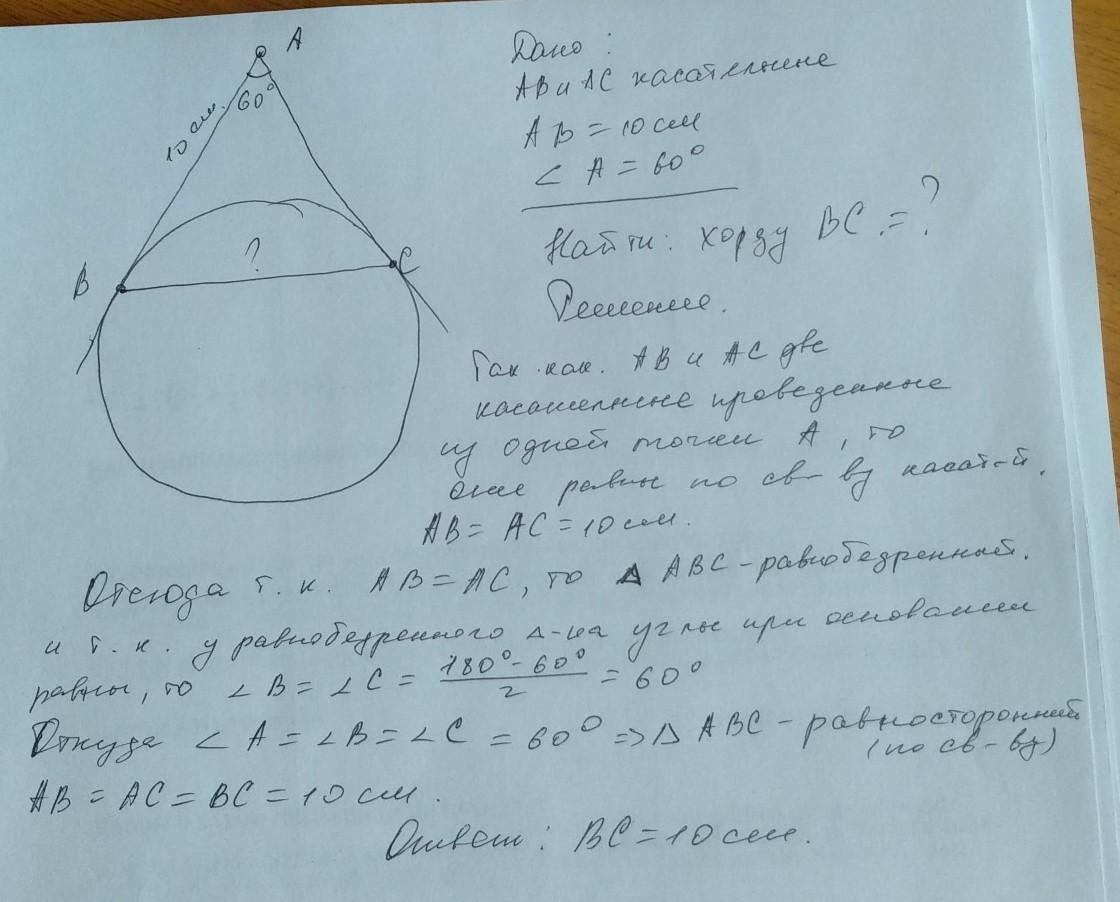 A
60°
10 см.
B
?
C
Дано:
AB и AC касательные
AB = 10 см
∠ A = 60°
Найти: хорду BC = ?
Решение.
Так как. AB и AC две
касательные проведенные
из одной точки A, то
они равны по св-ву касат-й.
AB = AC = 10 см.
Отсюда т. к. AB = AC, то Δ ABC - равнобедренный.
и т. к. у равнобедренного Δ-ка углы при основании
равны, то ∠ B = ∠ C = (180° - 60°)/2 = 60°
Откуда ∠ A = ∠ B = ∠ C = 60° => Δ ABC - равносторонний
(по св-ву)
AB = AC = BC = 10 см.
Ответ: BC = 10 см.